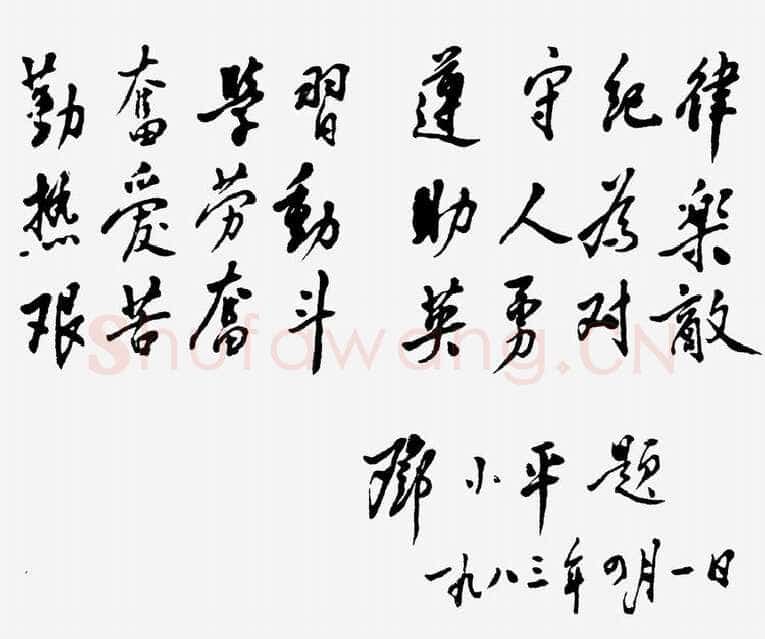 勤奮學習 遵守紀律
热愛劳動 助人為樂
艰苦奮斗 英勇对敵
Shufawang.CN
鄧小平題
一九八三年四月一日